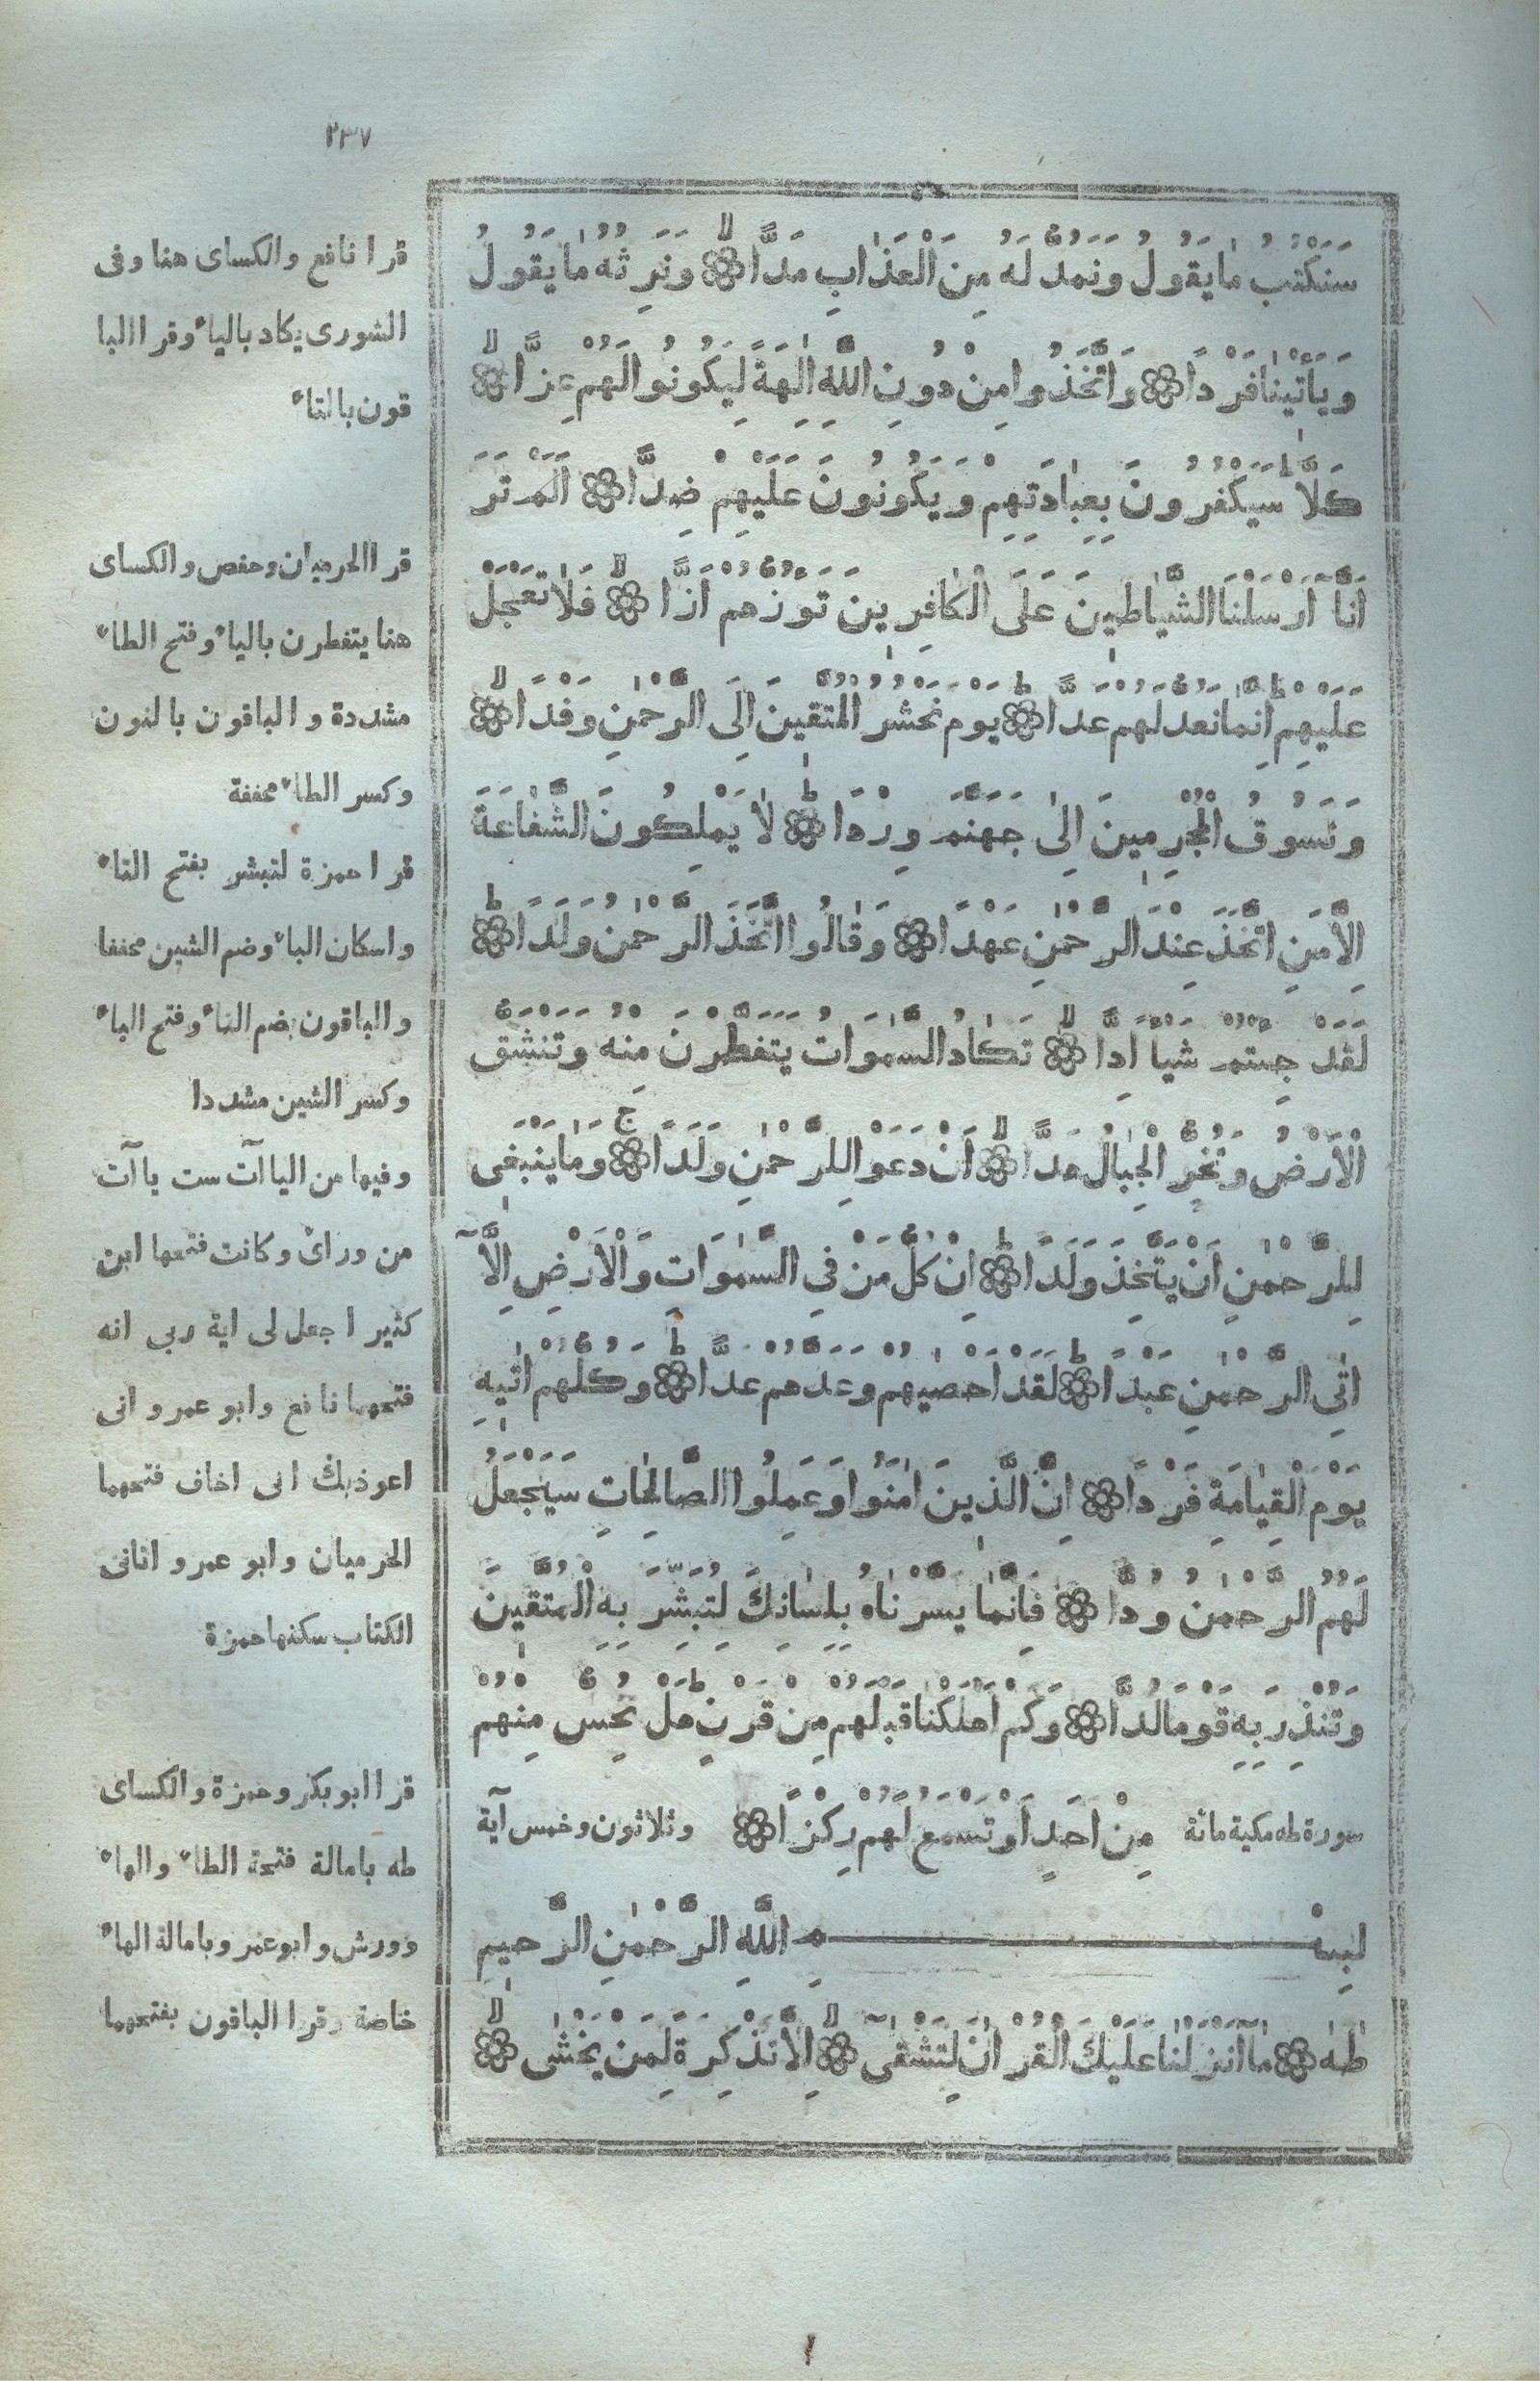 ٢٣٧
سَنَكْتُبُ مٰا يَقُولُ وَنَمُدُّ لَهُ مِنَ الْعَذٰابِ مَدًّا ۞ وَنَرِثُهُ مٰا يَقُولُ
وَيَأْتِينٰا فَرْدًا ۞ وَاتَّخَذُوا مِنْ دُونِ اللّٰهِ اٰلِهَةً لِيَكُونُوا لَهُمْ عِزًّا ۞
كَلَّا سَيَكْفُرُونَ بِعِبٰادَتِهِمْ وَيَكُونُونَ عَلَيْهِمْ ضِدًّا ۞ اَلَمْ تَرَ
اَنَّآ اَرْسَلْنَا الشَّيٰاطِينَ عَلَى الْكٰافِرِينَ تَؤُزُّهُمْ اَزًّا ۞ فَلٰا تَعْجَلْ
عَلَيْهِمْ اِنَّمٰا نَعُدُّ لَهُمْ عَدًّا ۞ يَوْمَ نَحْشُرُ الْمُتَّقِينَ اِلَى الرَّحْمٰنِ وَفْدًا ۞
وَنَسُوقُ الْمُجْرِمِينَ اِلٰى جَهَنَّمَ وِرْدًا ۞ لٰا يَمْلِكُونَ الشَّفٰاعَةَ
اِلَّا مَنِ اتَّخَذَ عِنْدَ الرَّحْمٰنِ عَهْدًا ۞ وَقٰالُوا اتَّخَذَ الرَّحْمٰنُ وَلَدًا ۞
لَقَدْ جِئْتُمْ شَيْأً اِدًّا ۞ تَكٰادُ السَّمٰوَاتُ يَتَفَطَّرْنَ مِنْهُ وَتَنْشَقُّ
الْاَرْضُ وَتَخِرُّ الْجِبٰالُ هَدًّا ۞ اَنْ دَعَوْا لِلرَّحْمٰنِ وَلَدًا ۞ وَمٰا يَنْبَغِى
لِلرَّحْمٰنِ اَنْ يَتَّخِذَ وَلَدًا ۞ اِنْ كُلُّ مَنْ فِى السَّمٰوَاتِ وَالْاَرْضِ اِلَّآ
اٰتِى الرَّحْمٰنِ عَبْدًا ۞ لَقَدْ اَحْصٰيهُمْ وَعَدَّهُمْ عَدًّا ۞ وَكُلُّهُمْ اٰتِيهِ
يَوْمَ الْقِيٰامَةِ فَرْدًا ۞ اِنَّ الَّذِينَ اٰمَنُوا وَعَمِلُوا الصَّالِحٰاتِ سَيَجْعَلُ
لَهُمُ الرَّحْمٰنُ وُدًّا ۞ فَاِنَّمٰا يَسَّرْنٰاهُ بِلِسٰانِكَ لِتُبَشِّرَ بِهِ الْمُتَّقِينَ
وَتُنْذِرَ بِهِ قَوْمًا لُدًّا ۞ وَكَمْ اَهْلَكْنٰا قَبْلَهُمْ مِنْ قَرْنٍ هَلْ تُحِسُّ مِنْهُمْ
سورة طه مكية مائة مِنْ اَحَدٍ اَوْ تَسْمَعُ لَهُمْ رِكْزًا ۞ وثلاثون وخمس آية
بِسْمِ اللّٰهِ الرَّحْمٰنِ الرَّحِيمِ
طٰهٰ ۞ مٰآ اَنْزَلْنٰا عَلَيْكَ الْقُرْاٰنَ لِتَشْقٰىٓ ۞ اِلَّا تَذْكِرَةً لِمَنْ يَخْشٰى ۞
قرا نافع والكساى هنا وفى
الشورى يكاد بالياء وقرا البا
قون بالتاء
قرا الحرميان وحفص والكساى
هنا يتفطرن بالياء وفتح الطاء
مشددة والباقون بالنون
وكسر الطاء مخففة
قرا حمزة لتبشر بفتح التاء
واسكان الباء وضم الشين مخففا
والباقون بضم التاء وفتح الباء
وكسر الشين مشددا
وفيها من الياآت ست ياآت
من وراى وكانت فتحها ابن
كثير اجعل لى اية ربى انه
فتحهما نافع وابو عمرو انى
اعوذ بك انى اخاف فتحهما
الحرميان وابو عمرو اتانى
الكتاب سكنها حمزة
قرا ابو بكر وحمزة والكساى
طه بامالة فتحة الطاء والهاء
وورش وابو عمرو بامالة الهاء
خاصة وقرا الباقون بفتحهما